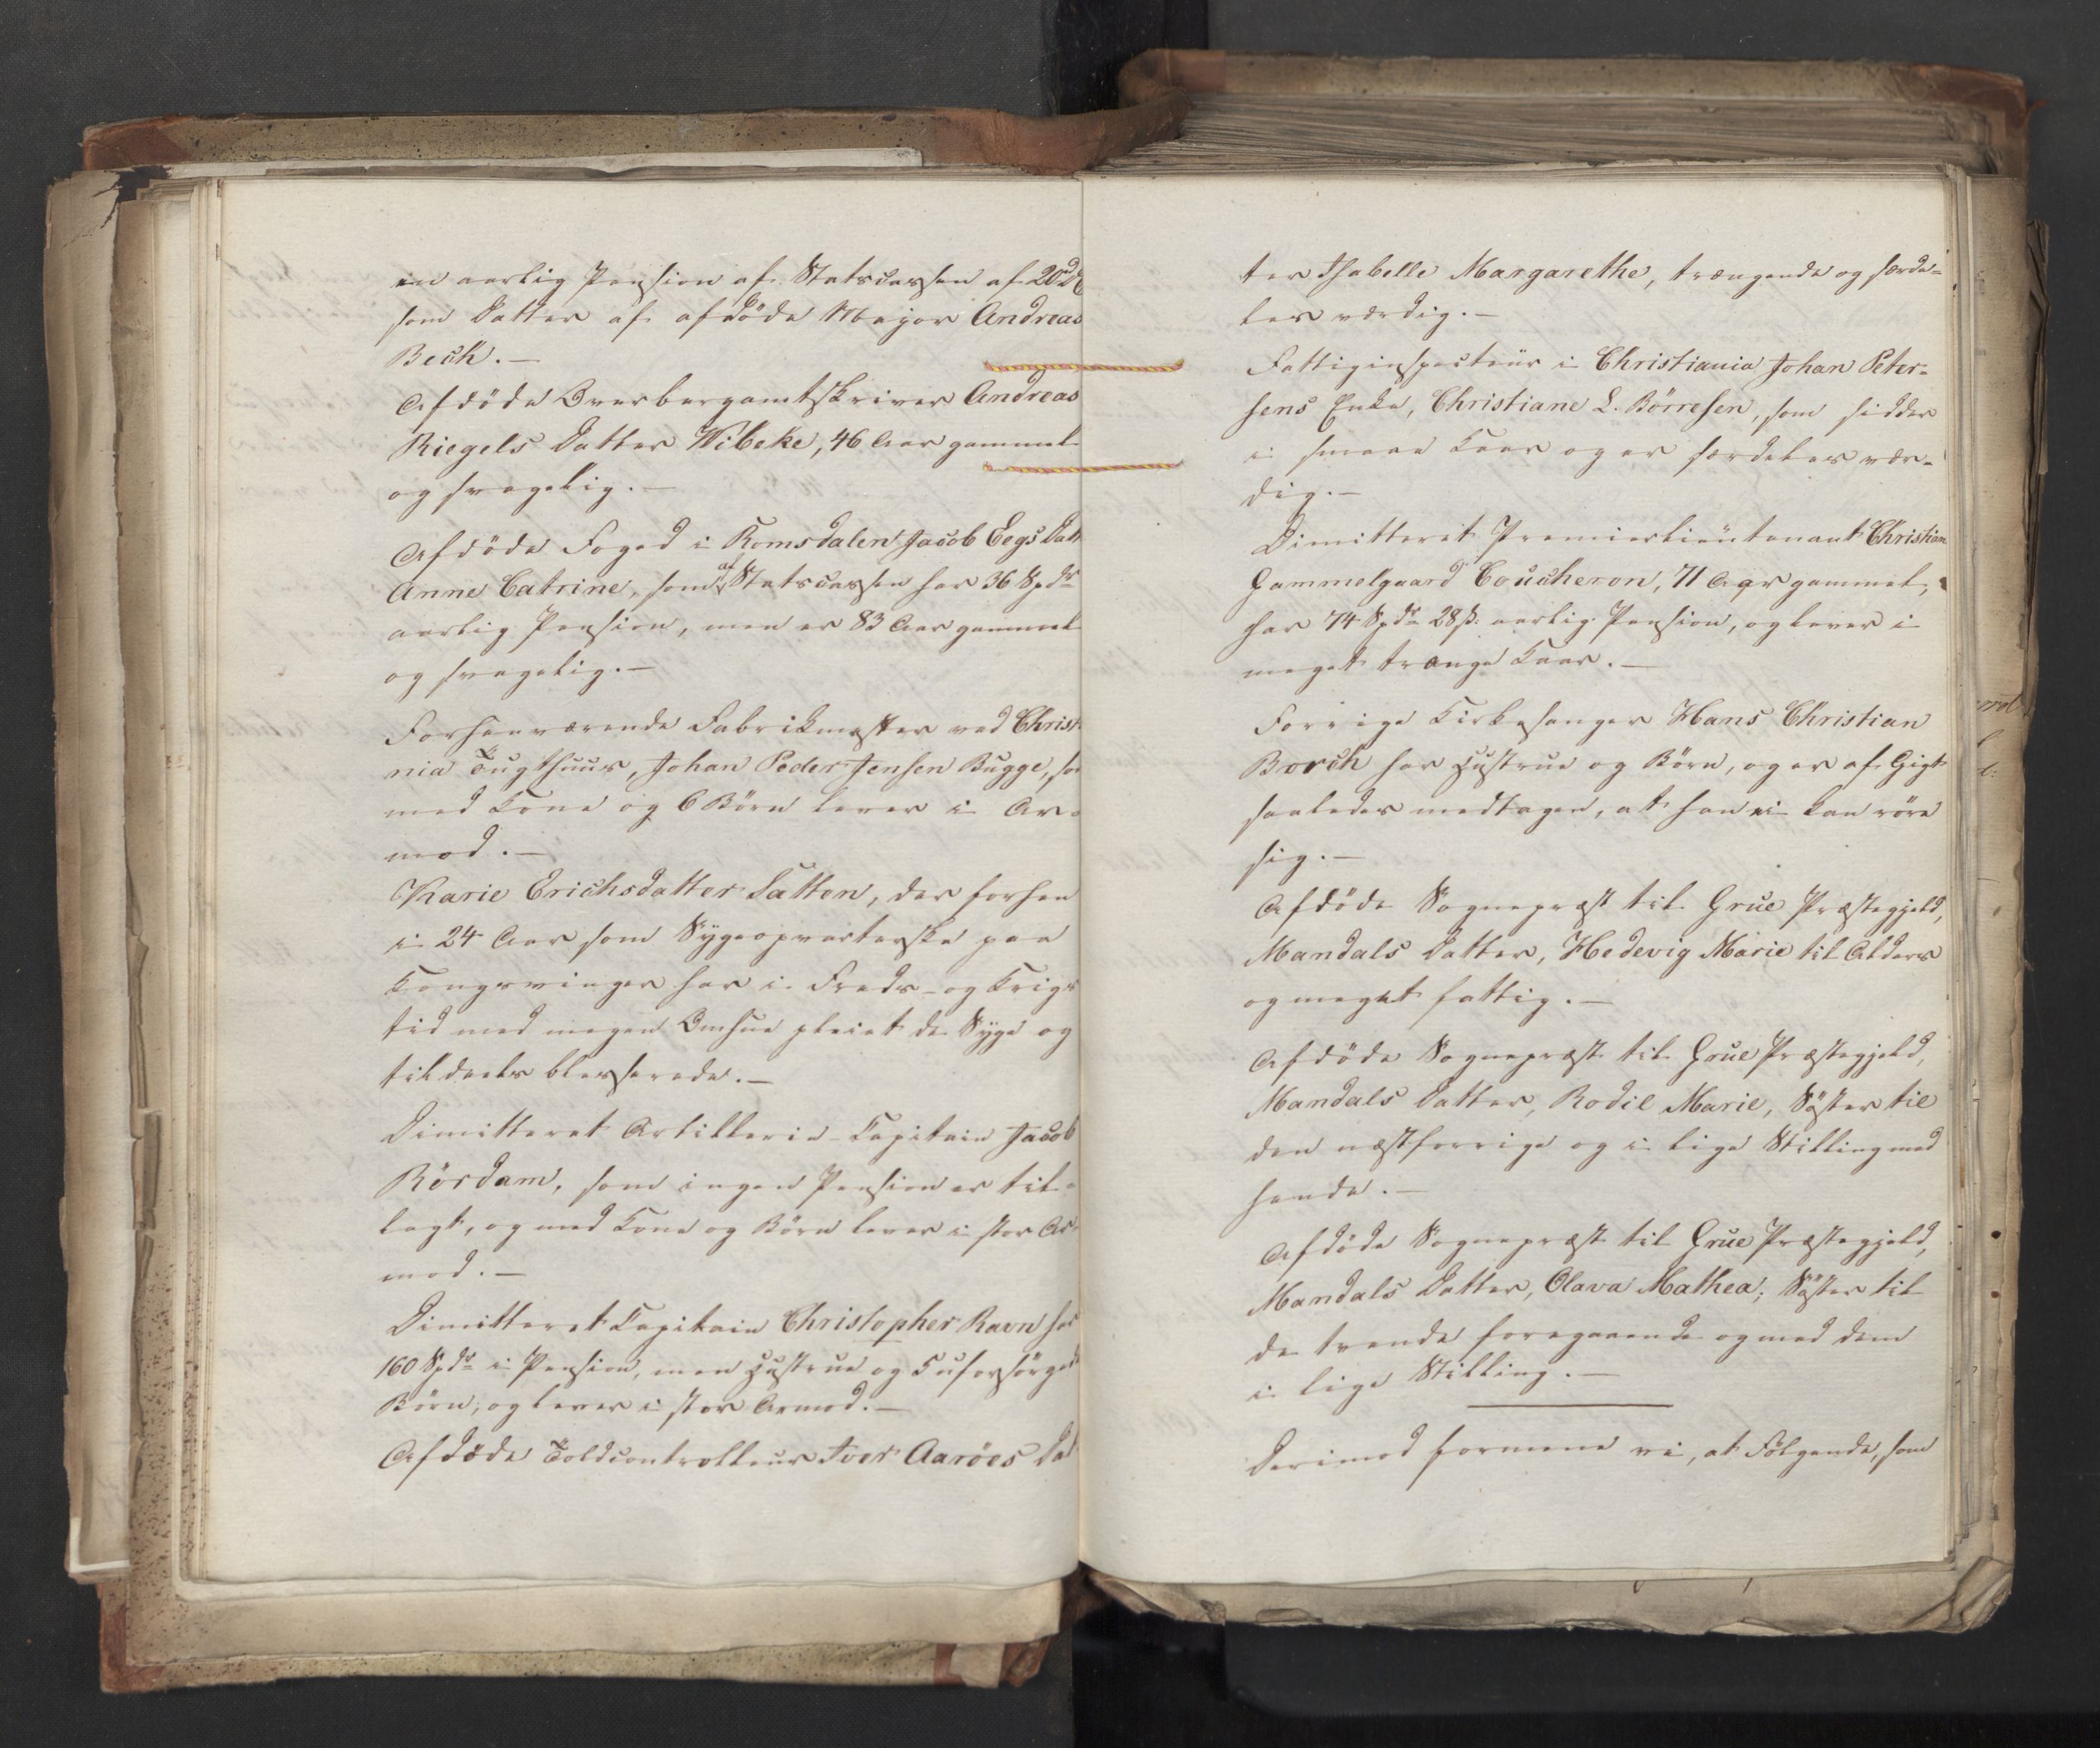 en aarlig Pension af Statscassen af 20 Spd
som Datter af afdöde Major Andreas
Bech. —
Afdöde Overbergamtskriver Andreas
Riegels Datter Wibeke, 46 Aar gammel
og svagelig. —
Afdöde Foged i Romsdalen Jacob Eegs Datt
Anne Catrine, som af Statscassen har 36 Spdr
aarlig Pension, men er 83 Aar gammel
og svagelig. —
Forhenværende Fabrikmester ved Christ-
nia Tugthuus, Johan Peder Jensen Bugge, som
med Kone og 6 Börn lever i Ar-
mod. —
Marie Erichsdatter Satten, der forhen
i 24 Aar som Sygeopvarterske paa
Kongsvinger har i Freds- og Krigs
tid med megen Omhue pleiet de Syge og
tildeels blesserede. —
Dimitteret Artillerie-Capitain Jacob
Rördam, som ingen Pension er til-
lagt, og med Kone og Börn lever i stor Ar-
mod. —
Dimitteret Capitain Christopher Ravn har
160 Spdr i Pension, men Hustrue og 5 uforsörgede
Börn, og lever i stor Armod. —
Afdöde Toldcontrolleur Iver Aaröes Dat
ter Isabelle Margarethe, trængende og særde-
les værdig. —
Fattiginspecteur i Christiania Johan Peter-
sens Enke, Christiane L. Börresen, som sidder
i smaae Kaar og er særdeles vær-
dig. —
Dimitteret Premierlieutenant Christian
Gammelgaard Coucheron, 71 Aar gammel,
har 74 Spdr 28 ß. aarlig Pension, og lever i
meget trange Kaar. —
Forrige Kirkesanger Hans Christian
Borch har Hustrue og Börn, og er af Gigt
saaledes medtagen, at han ei kan röre
sig. —
Afdöde Sognepræst til Grue Præstegjeld,
Mandals Datter, Hedevig Marie til Alders
og meget fattig. —
Afdöde Sognepræst til Grue Præstegjeld,
Mandals Datter, Bodil Marie, Söster til
den næstforrige og i lige Stilling med
hende. —
Afdöde Sognepræst til Grue Præstegjeld,
Mandals Datter, Olava Mathea; Söster til
de tvende foregaaende og med dem
i lige Stilling. —
Derimod formene vi, at Fölgende, som